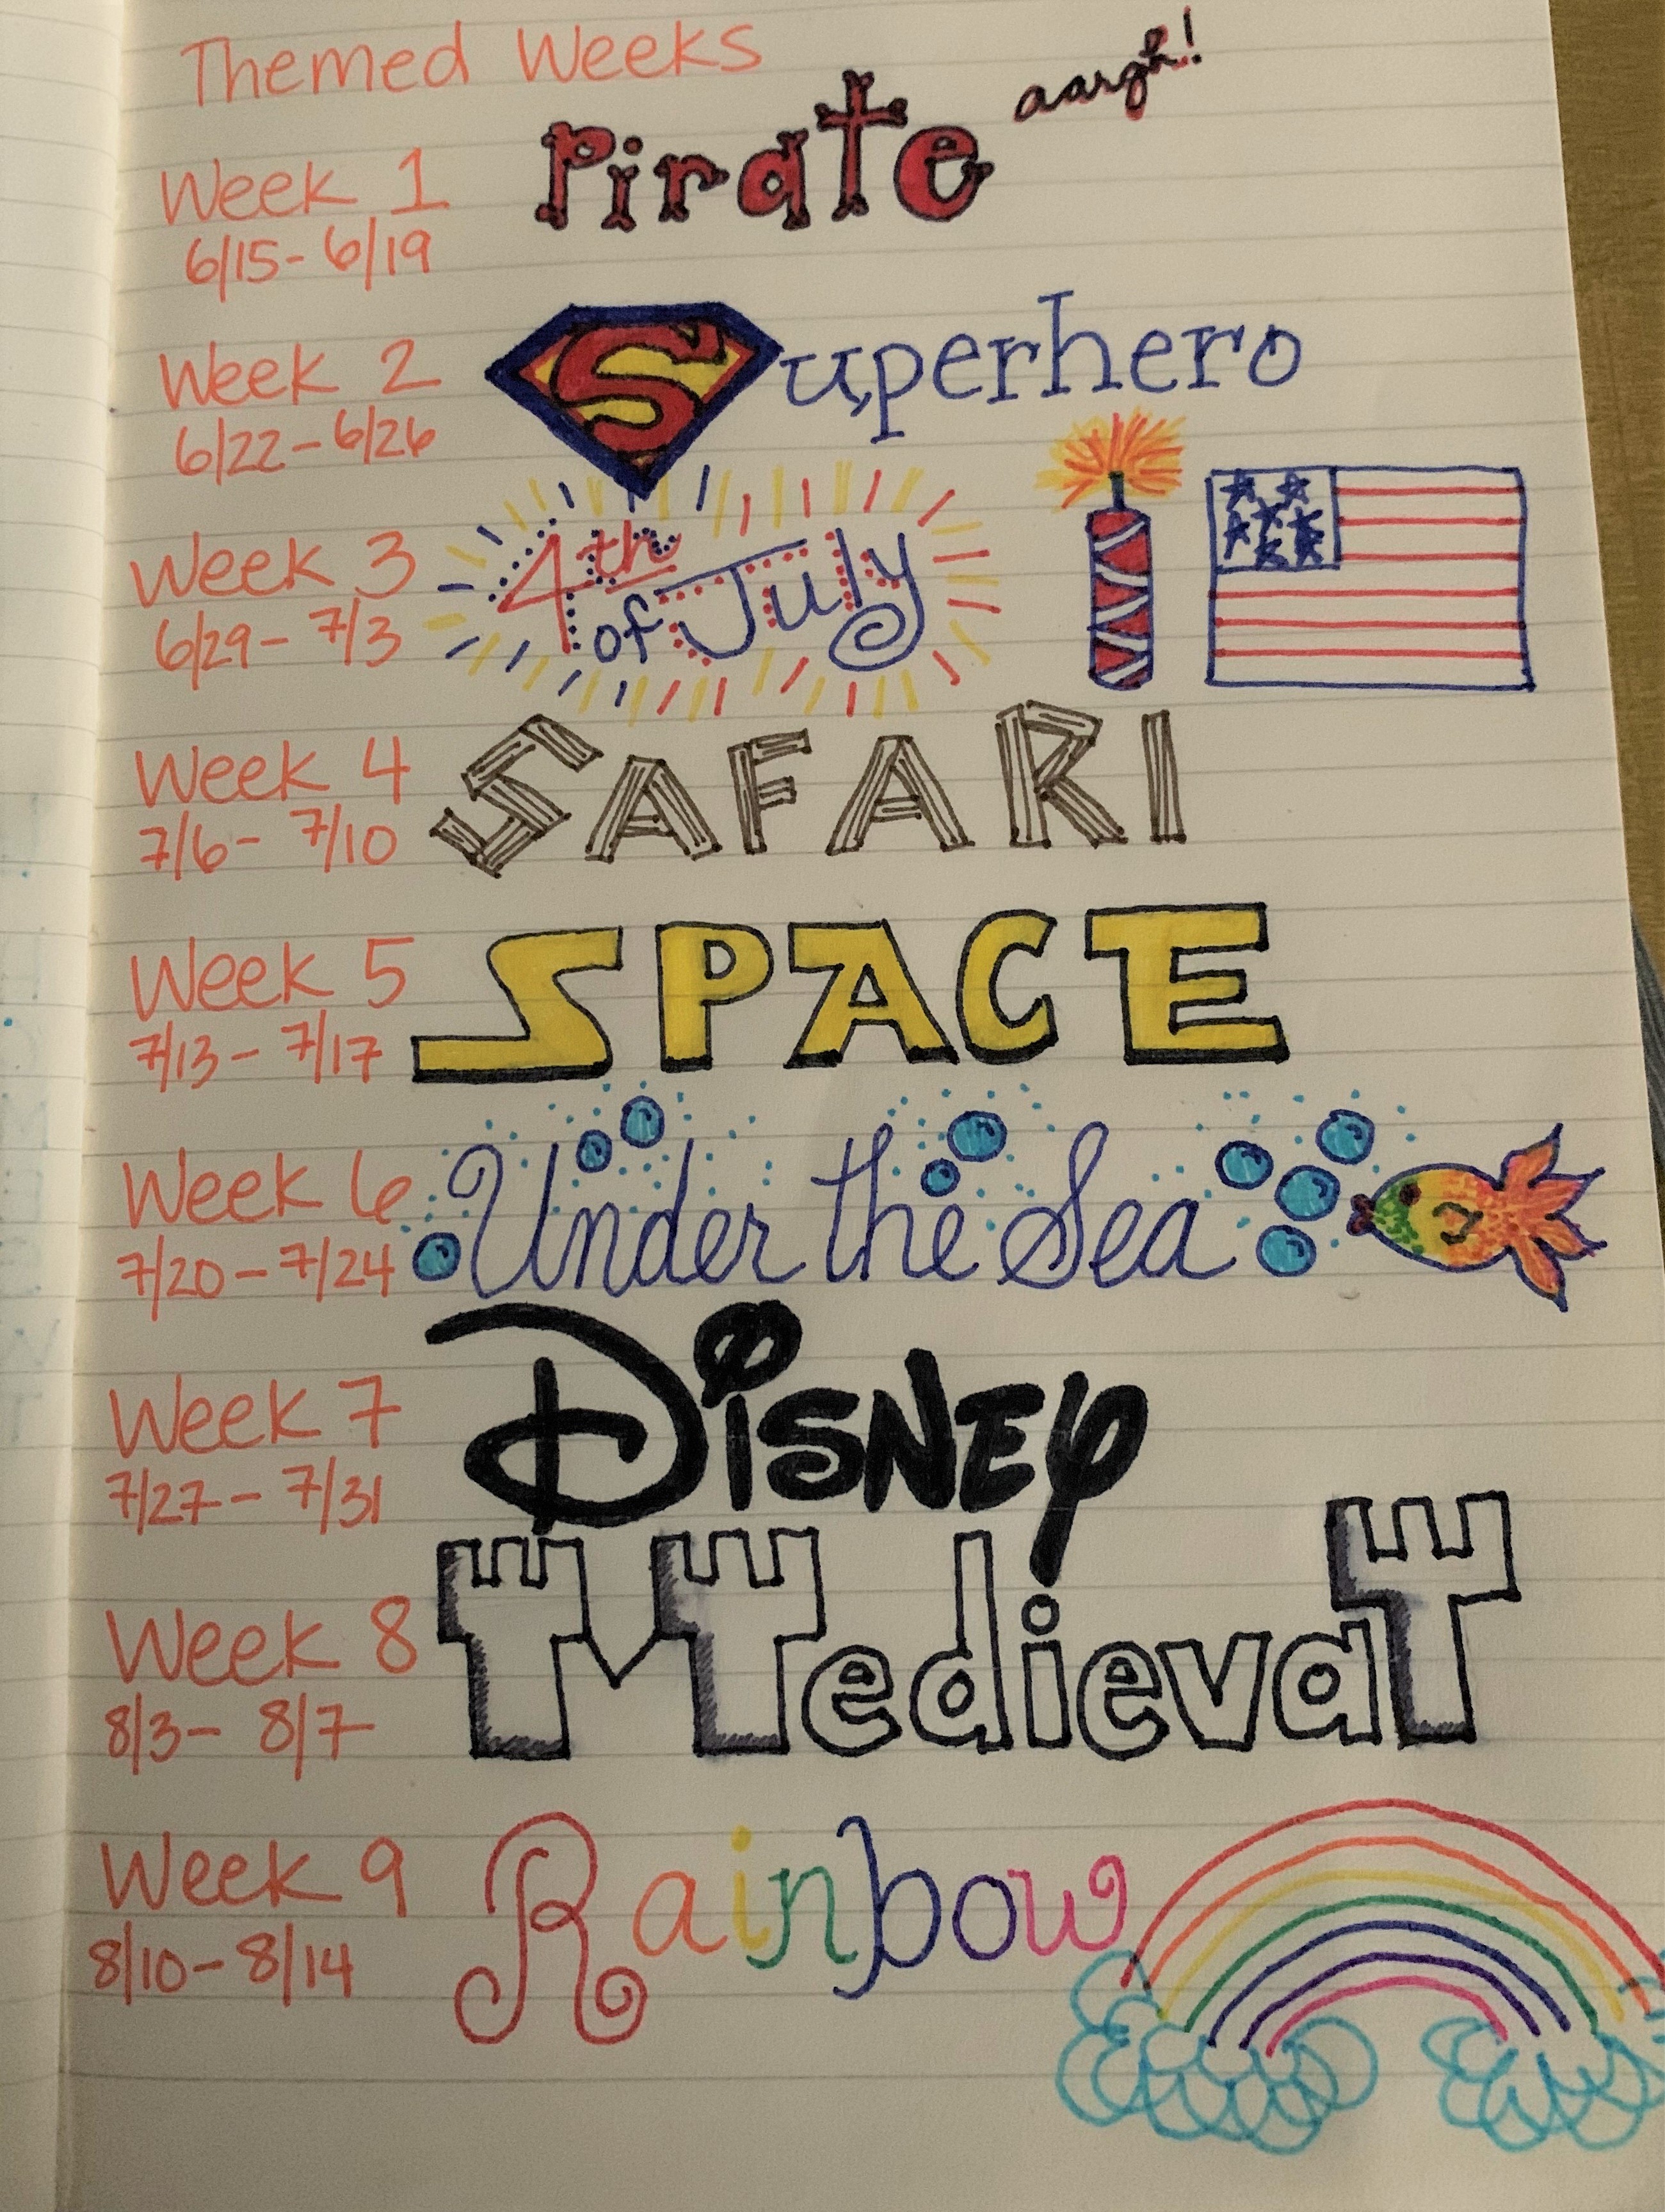 Themed Weeks
Week 1 Pirate aargh!
6/15 - 6/19
Week 2 Superhero
6/22 - 6/26
Week 3 4th of July
6/29 - 7/3
Week 4 SAFARI
7/6 - 7/10
Week 5 SPACE
7/13 - 7/17
Week 6 Under the Sea
7/20 - 7/24
Week 7 DiSNEY
7/27 - 7/31
Week 8 Medieval
8/3 - 8/7
Week 9 Rainbow
8/10 - 8/14